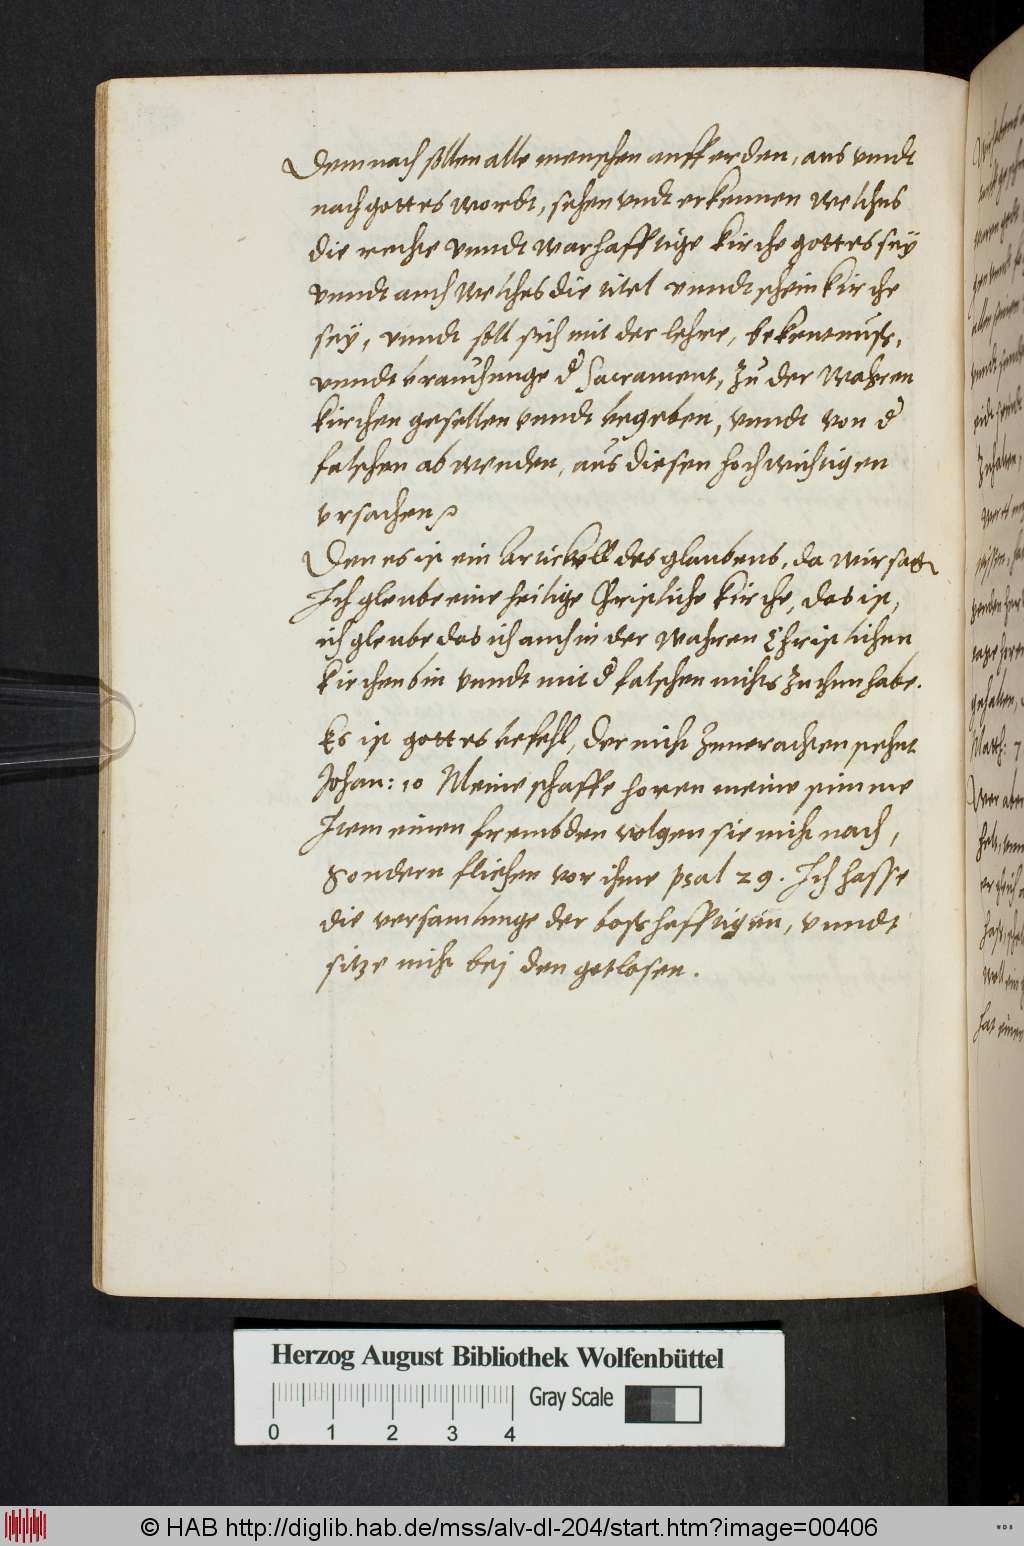 Demnach sollen alle menschen auff erden, aus vnndt
nach gottes wordt, sehen vndt erkennen welches
die rechte vnndt warhafftige kirche gottes seÿ
vnndt auch welches die titel vnndt schein kirche
seÿ, vnndt soll sich mit der lehre, bekentnuß,
vnndt brauchunge d' Sacrament, zu der wahren
kirchen gesellen vnndt begeben, vnndt von d'
falschen abwenden, aus diesen hochwichtigen
vrsachen
Den es ist ein Artickell des glaubens, da wir
Ich gleube eine heilige Christliche kirche, das ist,
ich gleube das ich auch in der wahren Christlichen
kirchen bin vnndt mit d' falschen nichts zu thun habe.
Es ist gottes befehl, der nicht zuuerachten stehet
Johan: 10 Meine schaffe horen meine stimme
Item einen frembden volgen sie nicht nach,
Sondern fliehen vor ihme psal 29. Ich hasse
die versamlunge der boßhafftigen, vnndt
sitze nicht bej den gotlosen.
Matth: 7
Wer aber
Herzog August Bibliothek Wolfenbüttel
Gray Scale
0 1 2 3 4
© HAB http://diglib.hab.de/mss/alv-dl-204/start.htm?image=00406